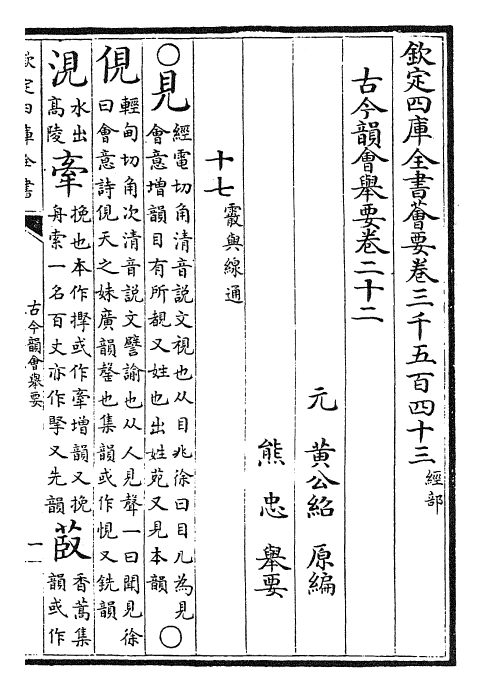 欽定四庫全書薈要卷三千五百四十三經部
古今韻會舉要卷二十二
元 黃公紹 原編
熊忠 舉要
十七
霰與線通
○見
經電切角清音說文視也从目儿徐曰目儿為見
會意增韻目有所覩又姓也出姓苑又見本韻
○
俔
輕甸切角次清音說文譬諭也从人見聲一曰聞見徐
曰會意詩俔天之妹廣韻罄也集韻或作悓又銑韻
涀
水出
高陵
牽
挽也本作㩃或作牽增韻又挽
舟索一名百丈亦作㩃又先韻
菣
香蒿集
韻或作
欽定四庫全書
古今韻會舉要
一